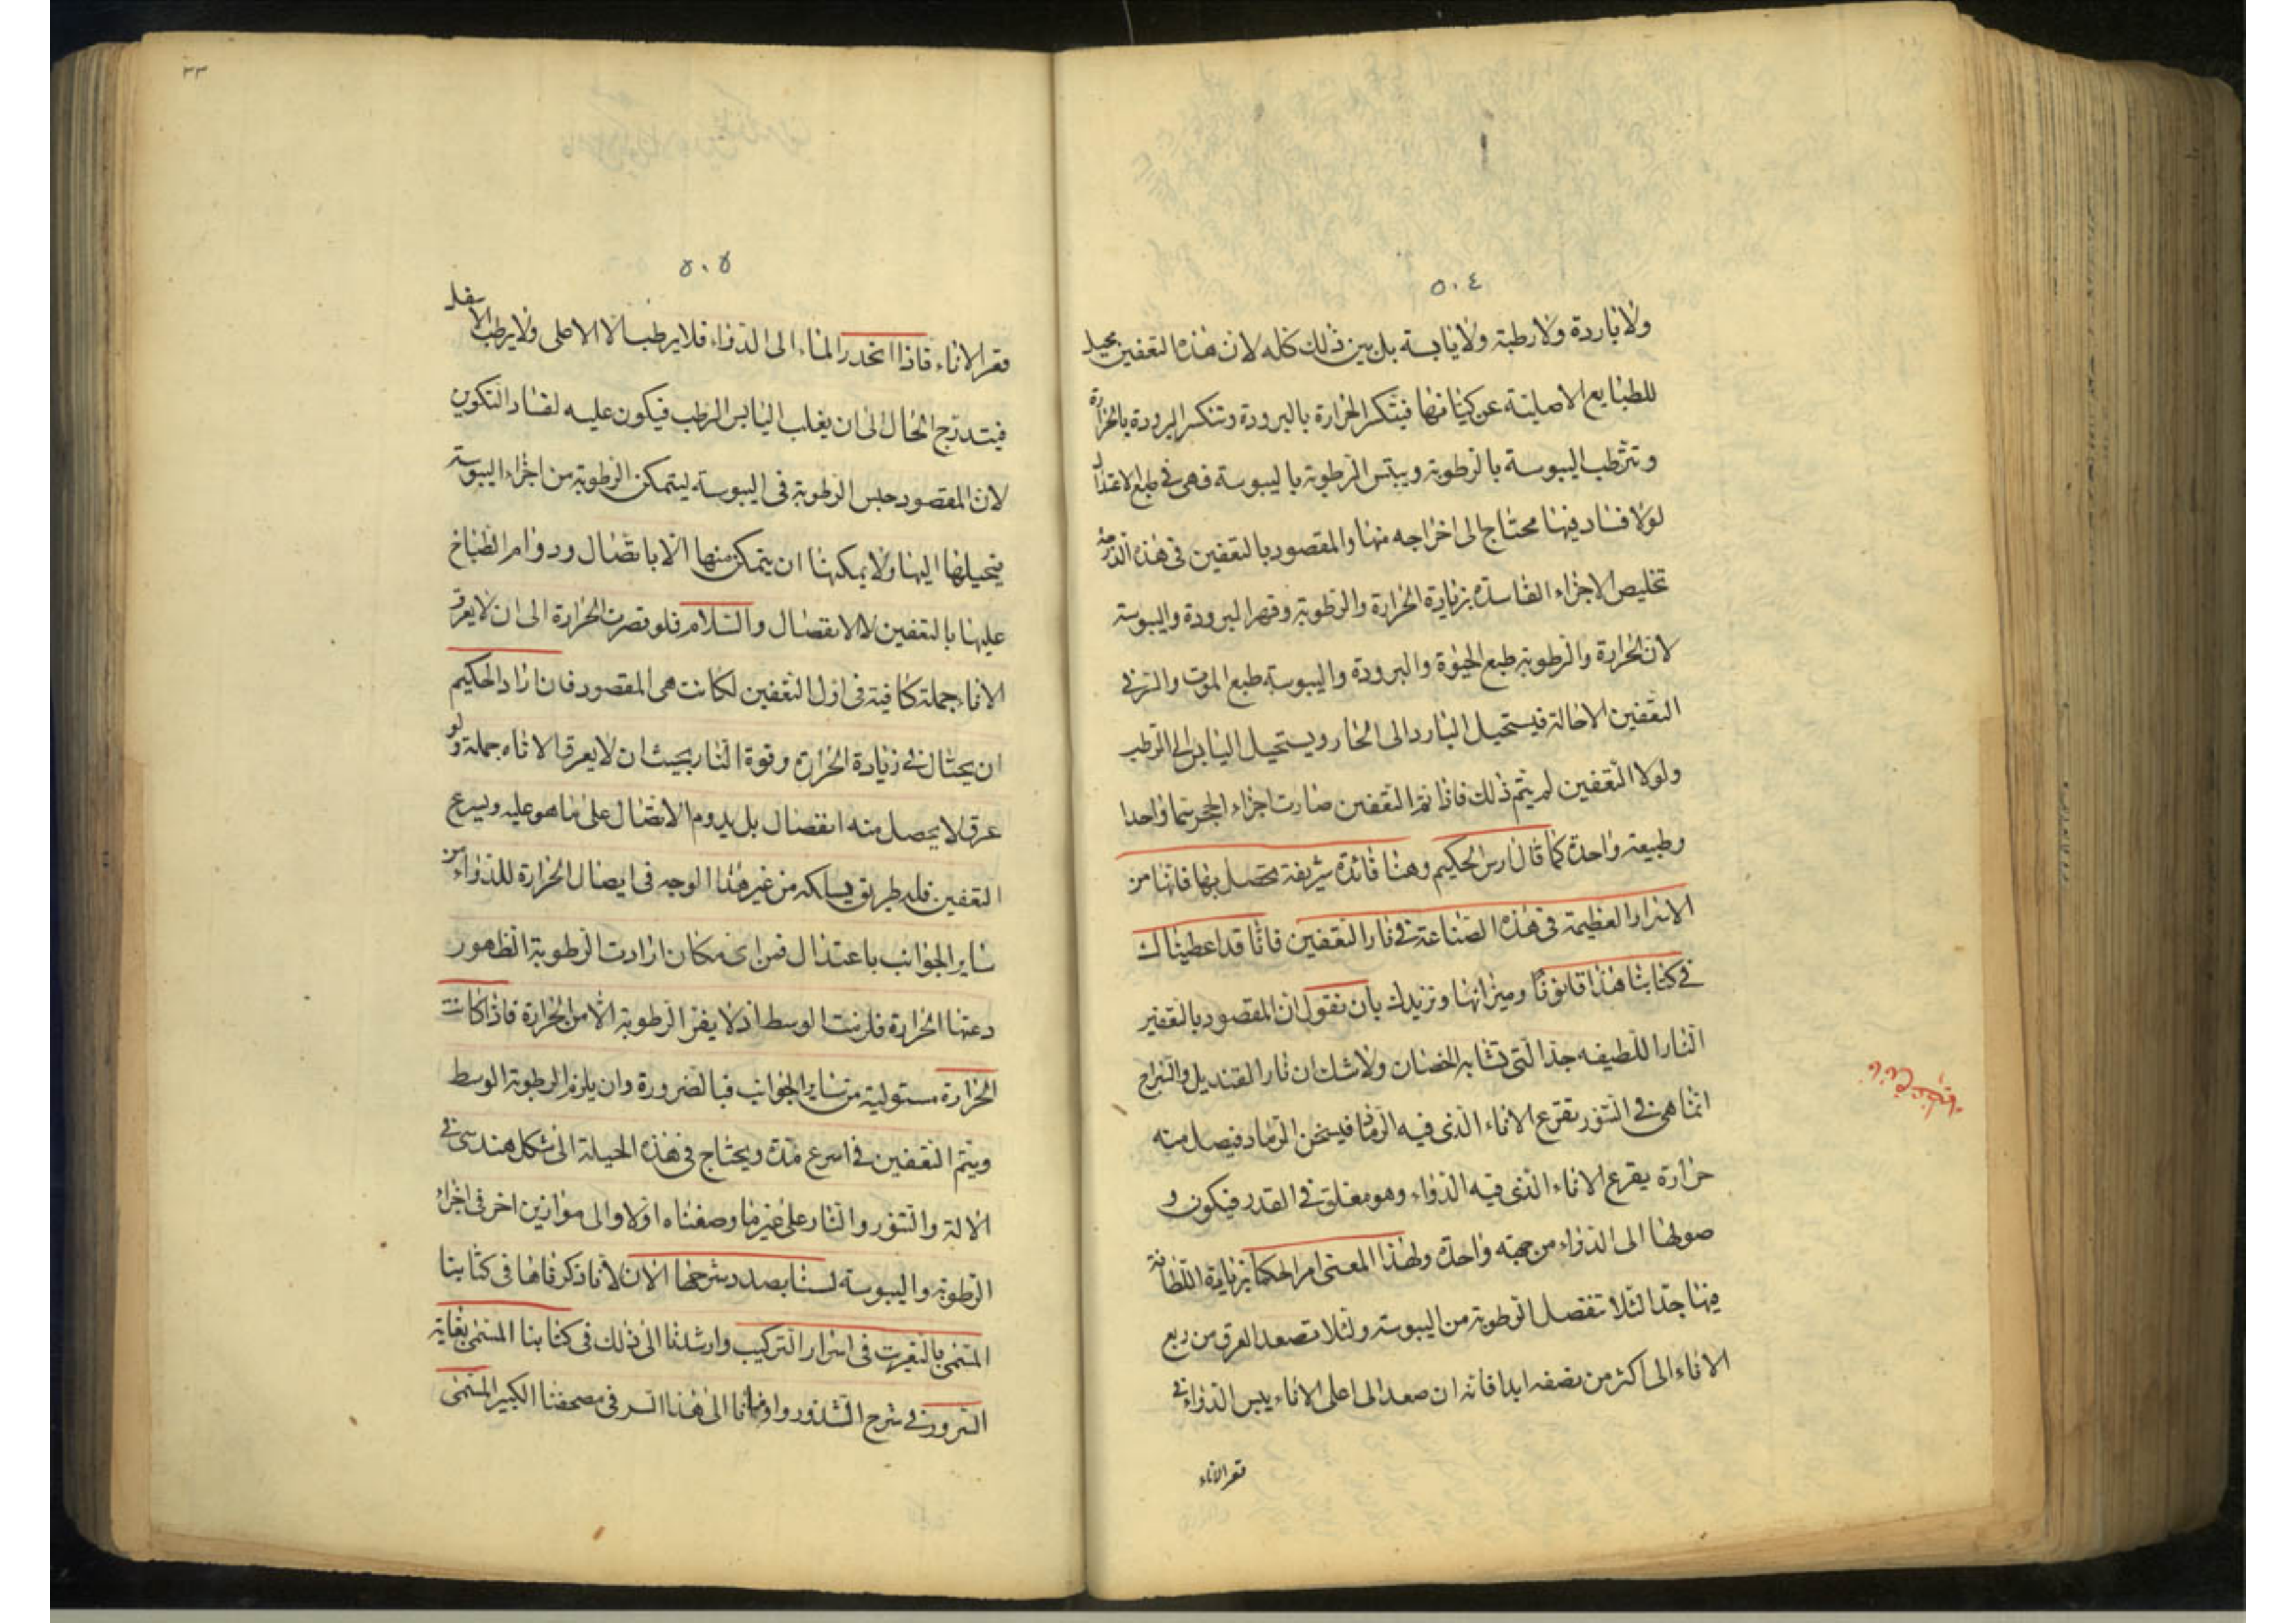 ٥٠٤
ولا باردة ولا رطبة ولا يابسة بل بين ذلك كله لان هذا التعفين يحيل
للطبايع الاصلية عن كيانها فيتكسر الحرارة بالبرودة وتنكسر البرودة بالحرارة
وتترطب اليبوسة بالرطوبة ويبتس الرطوبة باليبوسة فهى فى طبع الاعتدال
لولا فساد فيها محتاج الى اخراجه منها والمقصود بالتعفين فى هذه الدرجة
تخليص الاجزاء الفاسدة بزيادة الحرارة والرطوبة وقهر البرودة واليبوسة
لان الحرارة والرطوبة طبع الحيوة والبرودة واليبوسة طبع الموت والسر فى
التعفين الاحالة فيستحيل البارد الى الحار ويستحيل اليابس الى الرطب
ولولا التعفين لم يتم ذلك فاذا تم التعفين صارت اجزاء الحجر سما واحدا
وطبيعة واحدة كما قال ارس الحكيم وهنا فائدة شريفة تحصل بها فانها من
الاسرار العظيمة فى هذه الصناعة فى نار التعفين فانا قد اعطيناك
فى كتابنا هذا قانونا وميزانها ونزيدك بان نقول ان المقصود بالتعفير
النار اللطيفه جدا التى تشابه الحضان ولا شك ان نار القنديل والسراج
انما هى فى التنور تقرع الاناء الذى فيه الرماد فيسخن الرماد فيصل منه
حرارة يقرع الاناء الذى فيه الدواء وهو مغلق فى القدر فيكون و
صولها الى الدواء من جهته واحدة ولهذا المعنى امر الحكما بزيادة اللطافة
فيها جدا لئلا تنفصل الرطوبة من اليبوسة ولئلا تصعد العرق من ربع
الاناء الى اكثر من نصفه ابدا فانه ان صعد الى اعلى الاناء يبس الدواء فى
قعر الاناء
٣٣
٥٠٥
قعر الاناء فاذا انحدر الماء الى الدواء فلا يرطب الا الاعلى ولا يرطب الاسفل
فيتدرج الحال الى ان يغلب اليابس الرطب فيكون عليه لفساد التكوين
لان المقصود حبس الرطوبة فى اليبوسة ليتمكن الرطوبة من اجزاء اليبوسة
فيحيلها اليها ولا يمكنها ان يتمكن منها الا باتصال ودوام الطباخ
عليها بالتعفين لا الانفصال والسلام فلو قصرت الحرارة الى ان لا يعرق
الاناء جملة كافية فى اول التعفين لكانت هى المقصود فان اراد الحكيم
ان يحتال فى زيادة الحرارة وقوة النار بحيث ان لا يعرق الاناه جملة ولو
عرق لا يحصل منه انفصال بل يدوم الاتصال على ما هو عليه ويسرع
التعفين فله طريق يسلكه من غير هذا الوجه فى ايصال الحرارة للدواء من
ساير الجوانب باعتدال فمن اى مكان ارادت الرطوبة الظهور
دعتها الحرارة فلزمت الوسط اذ لا يفر الرطوبة الا من الحرارة فاذا كانت
الحرارة مستولية من ساير الجوانب فبالضرورة وان يلزم الرطوبة الوسط
ويتم التعفين فى اسرع مدة ويحتاج فى هذه الحيلة الى شكل هندسى فى
الالة والتنور والنار على غير ما وصفناه اولا والى موازين اخر فى اجزاء
الرطوبة واليبوسة لسنا بصدد شرحها الان لانا ذكرناها فى كتابنا
المسمى بالتقريب فى اسرار التركيب وارشدنا الى ذلك فى كتابنا المسمى بغاية
السرور فى شرح الشذور واومانا الى هذا السر فى مصحفنا الكبير المسمى